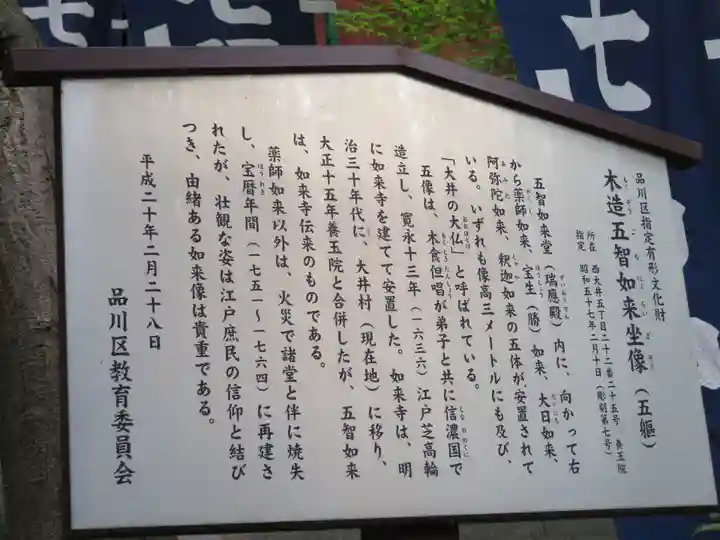 品川区指定有形文化財
木造五智如来坐像（五軀）
所在 西大井五丁目二十二番二十五号 養玉院
指定 昭和五十七年二月十日（彫刻第七号）
五智如来堂（瑞應殿）内に、向かって右
から薬師如来、宝生（勝）如来、大日如来、
阿弥陀如来、釈迦如来の五体が安置されて
いる。いずれも像高三メートルにも及び、
「大井の大仏」と呼ばれている。
五像は、木食但唱が弟子と共に信濃国で
造立し、寛永十三年（一六三六）江戸芝高輪
に如来寺を建てて安置した。如来寺は、明
治三十年代に、大井村（現在地）に移り、
大正十五年養玉院と合併したが、五智如来
は、如来寺伝来のものである。
薬師如来以外は、火災で諸堂と伴に焼失
し、宝暦年間（一七五一～一七六四）に再建さ
れたが、壮観な姿は江戸庶民の信仰と結び
つき、由緒ある如来像は貴重である。
平成二十年二月二十八日
品川区教育委員会